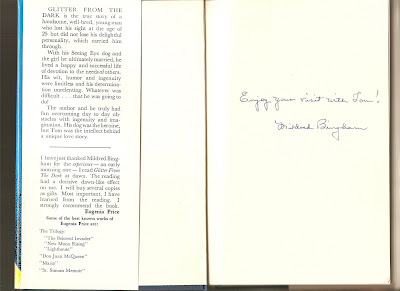 GLITTER FROM THE
DARK is the true story of a
handsome, well-bred, young man
who lost his sight at the age of
29 but did not lose his delightful
personality, which carried him
through.
With his Seeing Eye dog and
the girl he ultimately married, he
lived a happy and successful life
of devotion to the needs of others.
His wit, humor and ingenuity
were limitless and his determina-
tion unrelenting. Whatever was
difficult . . . that he was going to
do!
The author and he truly had
fun overcoming day to day ob-
stacles with ingenuity and imagi-
nation. His dog was the hero,
but Tom was the intellect behind
a unique love story.
I have just thanked Mildred Bing-
ham for the experience — an early
morning one — I read Glitter From
The Dark at dawn. The reading
had a decisive dawn-like effect
on me. I will buy several copies
as gifts. Most important, I have
learned from the reading. I
strongly recommend the book.
Eugenia Price
Some of the best known works of
Eugenia Price are:
The Trilogy:
"The Beloved Invader"
"New Moon Rising"
"Lighthouse"
"Don Juan McQueen"
"Maria"
"St. Simons Memoir"
Enjoy your visit with Tom!
Mildred Bingham